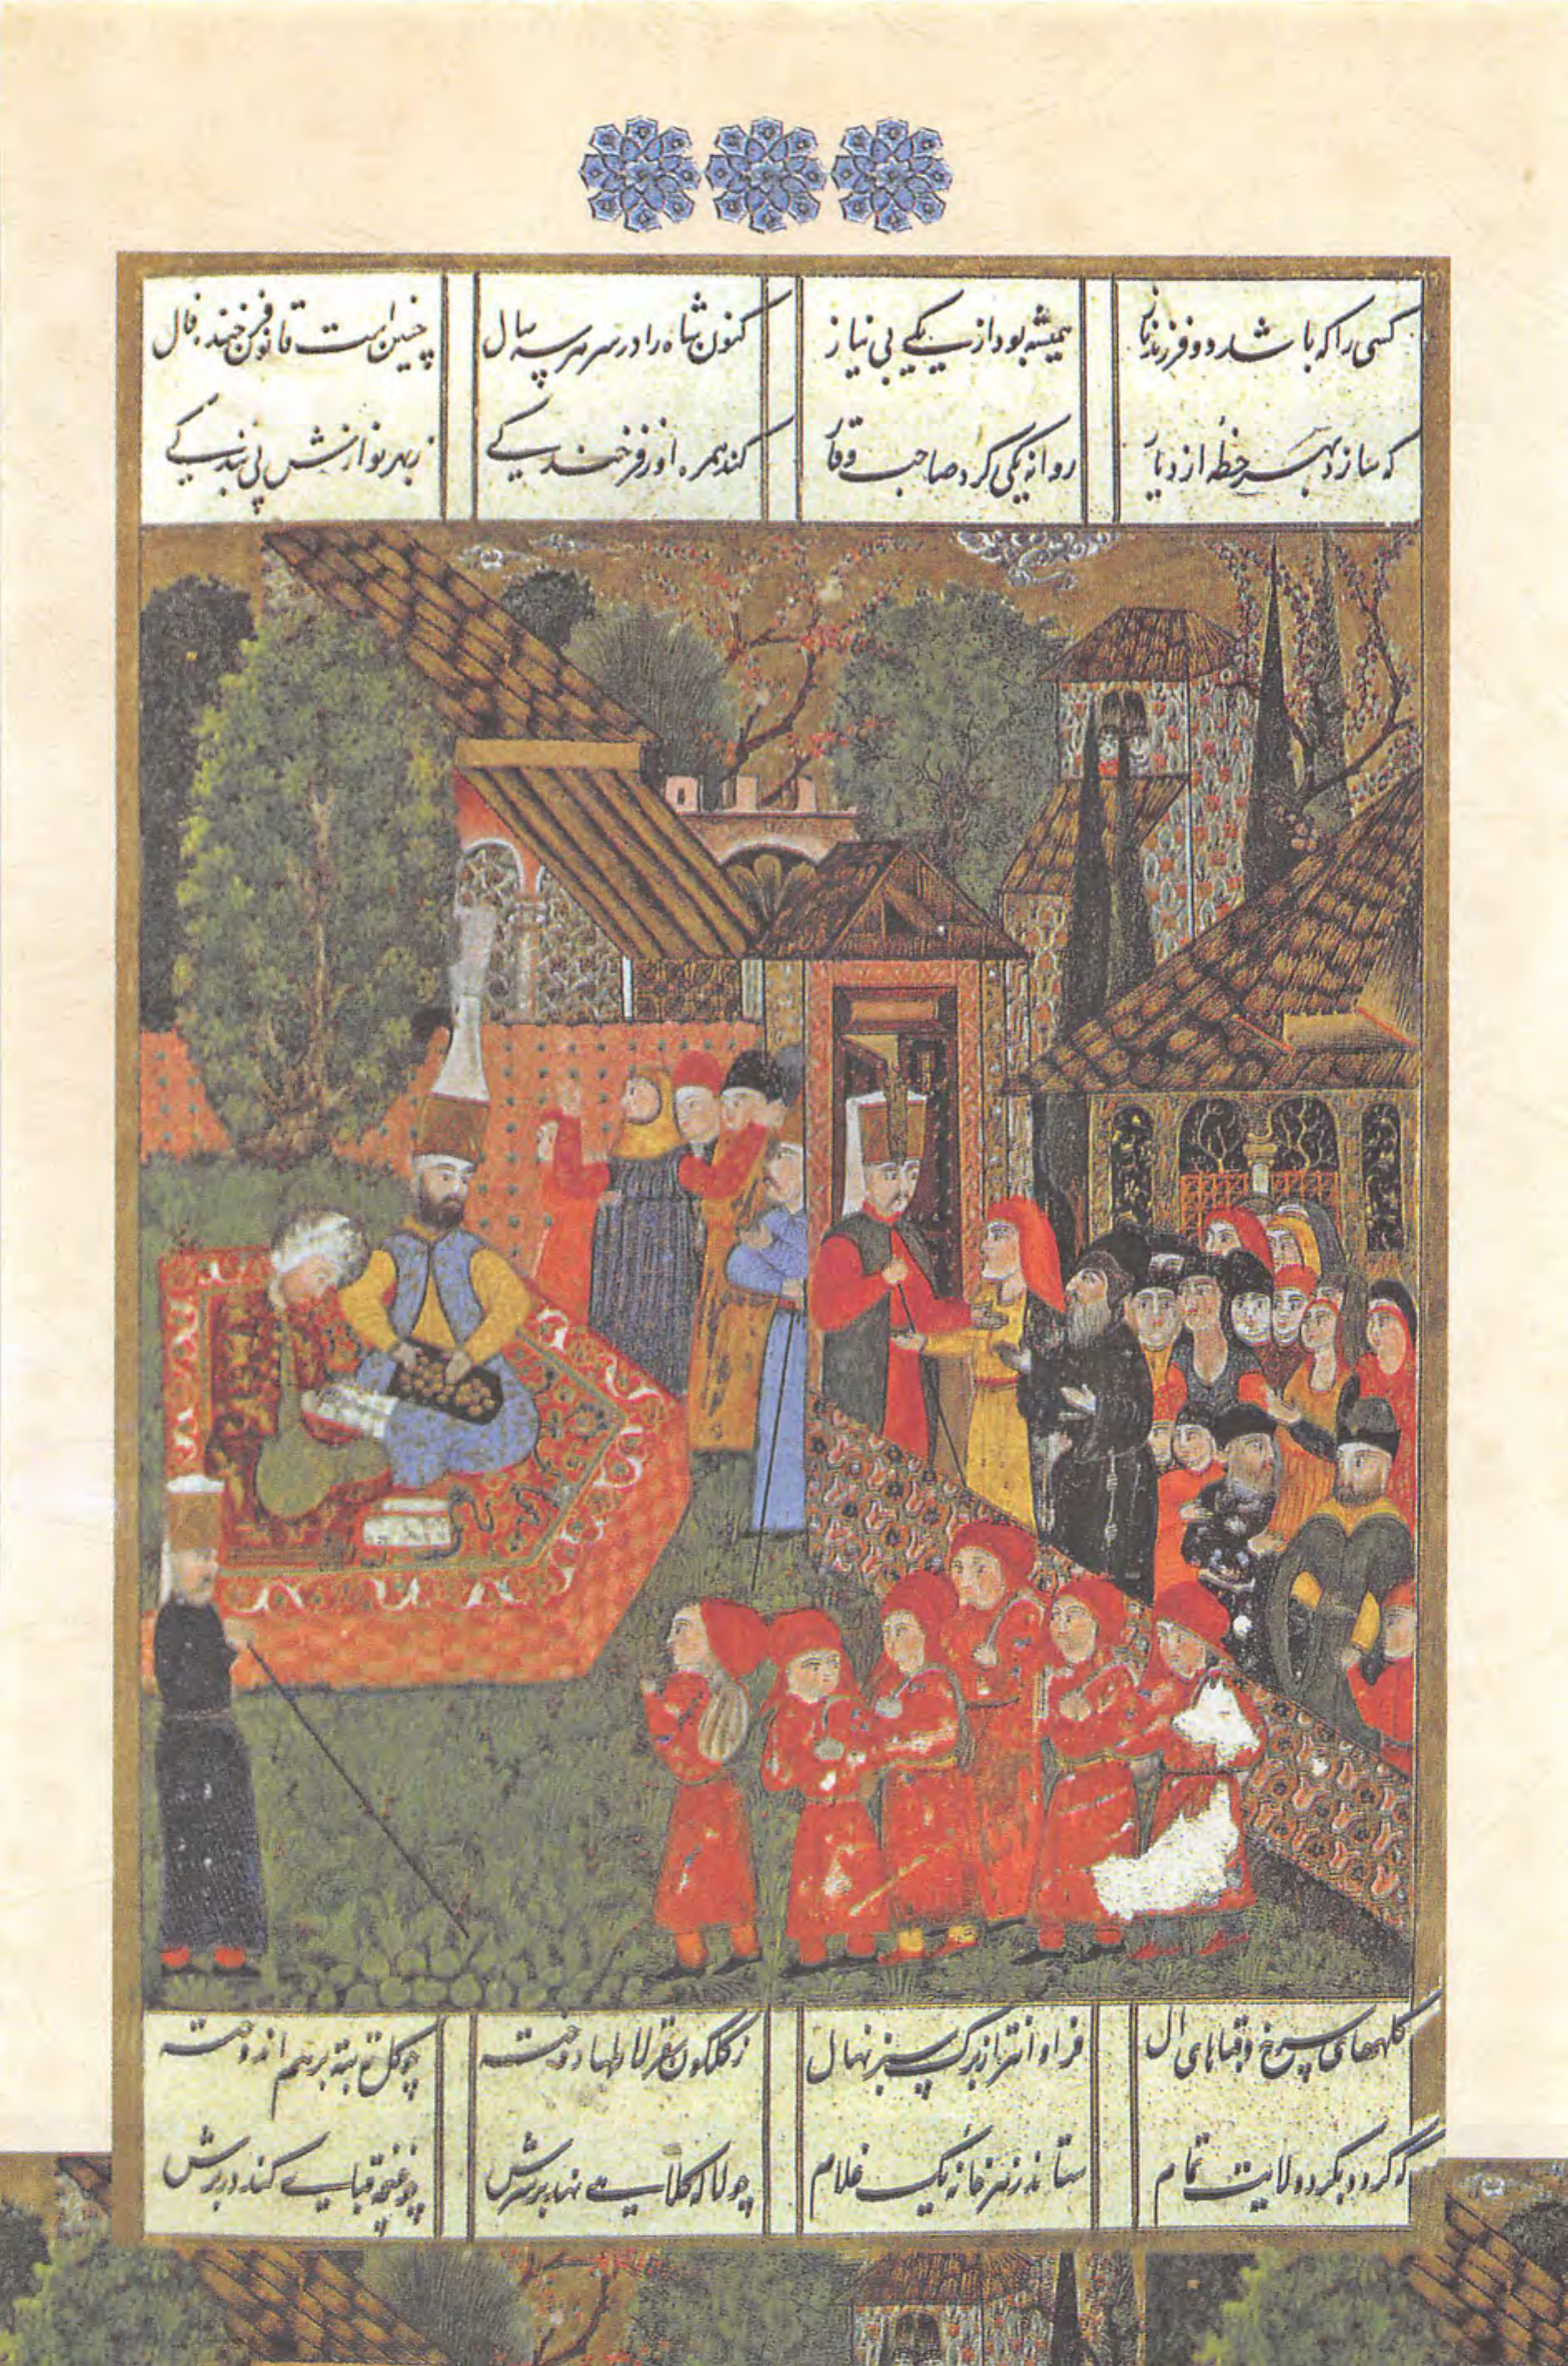 کسی را که باشد دو فرزند باز همیشه بود از یکی بی نیاز کنون شاه را در سر هر سه سال چنین است قانون فرخنده فال
که سازد بهر خطه از دیار روانه یکی کرد صاحب وقار کند همره او ز فرخندکی ز بهر نوازش پی بندکی
کلههای سرخ و قباهای ال فراوانتر از برک سبز نهال ز کلکون سقرلاطها دوخته چو کل تو بتو بر هم اندوخته
که کردد بکرد ولایت تمام ستاند ز هر خانه یک غلام چو لاله کلاهی نهد بر سرش چو غنچه قبایی کند در برش